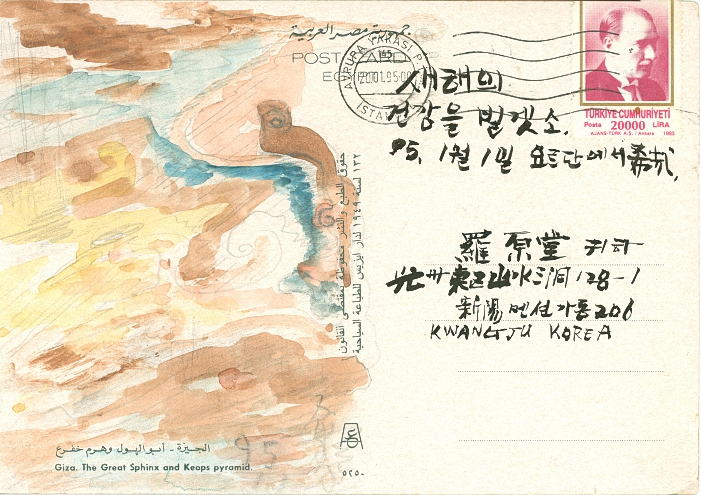 جمهورية مصر العربية
POST CARD
EGYPT
AVRUPA YAKASI P
145
20.01.95
İSTA
TÜRKİYE CUMHURİYETİ
Posta 20000 LİRA
AJANS-TÜRK A.S. / Ankara 1993
새해의
건강을 빌겟소.
95. 1월 1일 요르단에서
羅原堂 귀하
光州東區山水三洞 128-1
新陽맨션 가동 206
KWANGJU KOREA
حقوق الطبع والنشر محفوظة بمقتضى القانون
١٣٢ لسنة ١٩٤٩ لدار ايزيس للطباعة السياحية
95
الجيزة - أبو الهول وهرم خفرع
Giza. The Great Sphinx and Keops pyramid.
٥٢٥٠